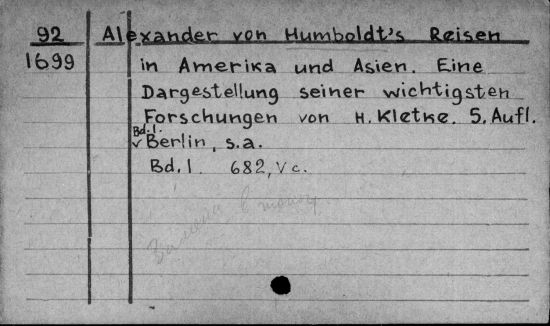 92 Alexander von Humboldt's Reisen
1699 in Amerika und Asien. Eine
Dargestellung seiner wichtigsten
Forschungen von H. Kletke. 5. Aufl.
Bd. 1.
v Berlin, s.a.
Bd. 1. 682, V c.